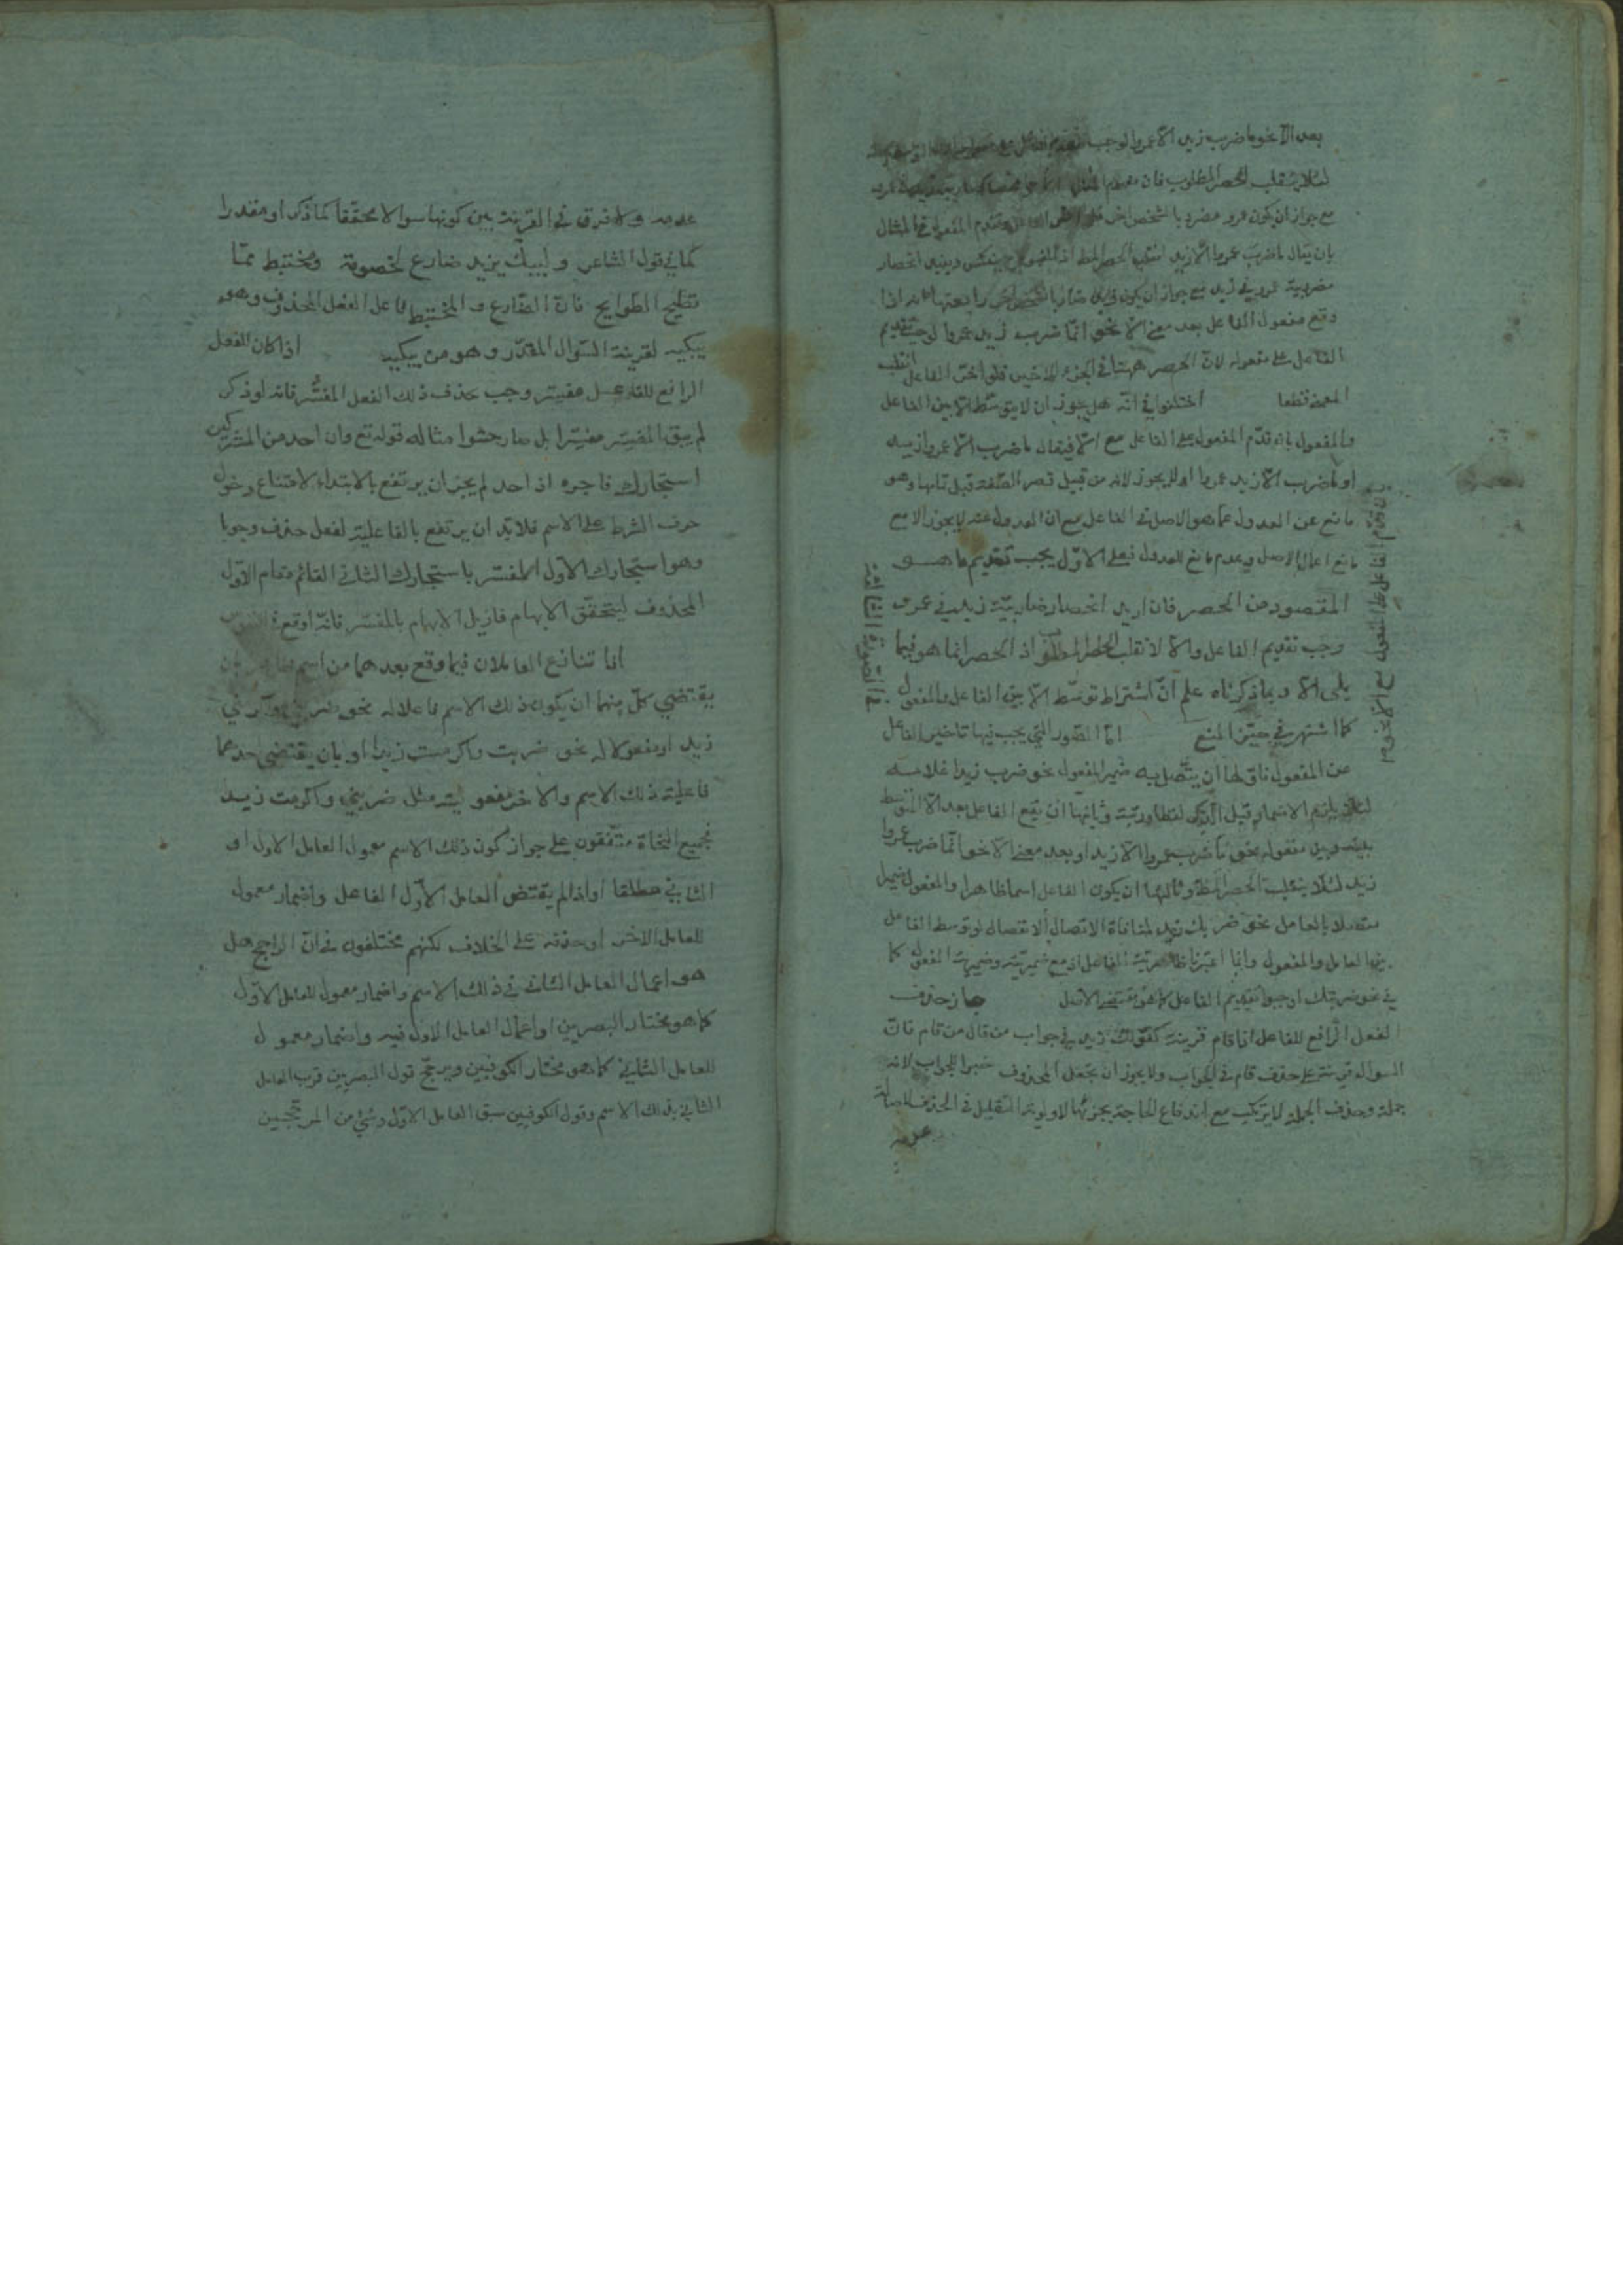 بعد الا نحو ما ضرب زيد الا عمروا لوجب
لئلا ينقلب الحصر المطلوب فان مفهوم
مع جواز ان يكون عمرو مضروبا لشخص اخر المفعول في المثال
بان يقال ما ضرب عمروا الا زيد انقلب الحصر المط وينعكس ويفيد انحصار
مضروبية عمرو في زيد مع جواز ان يكون زيد ضاربا لشخص اخر رابعتها انه اذا
وقع مفعول الفاعل بعد معنى الا نحو انما ضرب زيد عمروا لوجب تقديم
الفاعل على مفعوله لان الحصر ههنا في الجزء الاخير فلو اخر الفاعل انقلب
المعنى قطعا اختلفوا في انه هل يجوز ان لا يتوسط الا بين الفاعل
والمفعول بانه تقدم المفعول على الفاعل مع الا فيقال ما ضرب الا عمروا زيد
او ما ضرب الا زيد عمروا او لا يجوز لانه من قبيل قصر الصفة قبل تمامها وهو
مانع عن العدول عما هو الاصل في الفاعل مع ان العدول عنه لا يجوز الا مع
مانع اعمال الاصل وعدم مانع العدول فعلى الاول يجب تقديم ما هو
المقصود من الحصر فان اريد انحصار ضاربية زيد في عمرو
وجب تقديم الفاعل والا لانقلب الحصر المطلوب اذ الحصر انما هو فيما
يلى الا وبما ذكرناه علم ان اشتراط توسط الا بين الفاعل والمفعول
كما اشتهر في حيز المنع اما الصور التي يجب فيها تاخير الفاعل
عن المفعول فاولها ان يتصل به ضمير المفعول نحو ضرب زيدا غلامه
لئلا يلزم الاضمار قبل الذكر لفظا ورتبة وثانيها ان يقع الفاعل بعد الا المتوسط
بينه وبين مفعوله نحو ما ضرب عمروا الا زيد او بعد معنى الا نحو انما ضرب عمروا
زيد لئلا ينقلب الحصر المط وثالثها ان يكون الفاعل اسما ظاهرا والمفعول ضميرا
متصلا بالعامل نحو ضربك زيد لمنافاة الاتصال الانفصال لو توسط الفاعل
بين العامل والمفعول وانما اعتبرنا ظاهرية الفاعل اذ مع ضميريته وضميرية المفعول كما
في نحو ضربتك اوجبوا تقديم الفاعل كما هو مقتضى الاصل جاز حذف
الفعل الرافع للفاعل اذا قام قرينة كقولك زيد في جواب من قال من قام فان
السوال قرينة على حذف قام في الجواب ولا يجوز ان يجعل المحذوف خبرا للجواب لانه
جملة وحذف الجملة لا يرتكب مع اندفاع الحاجة بجزئها لاولوية التقليل في الحذف
عدمه
عدمه ولا فرق في القرينة بين كونها سوالا محققا كما ذكر او مقدرا
كما في قول الشاعر وليبك يزيد ضارع لخصومة ومختبط مما
تطيح الطوايح فان الضارع والمختبط فاعل الفعل المحذوف وهو
يبكيه لقرينة السوال المقدر وهو من يبكيه اذا كان الفعل
الرافع للفاعل مفسر وجب حذف ذلك الفعل المفسر فانه لو ذكر
لم يبق المفسر مفسرا بل صار حشوا مثاله قوله تع وان احد من المشركين
استجارك فاجره اذ احد لم يجز ان يرتفع بالابتداء لامتناع دخول
حرف الشرط على الاسم فلا بد ان يرتفع بالفاعلية لفعل حذف وجوبا
وهو استجارك الاول المفسر باستجارك الثاني القائم مقام الاول
المحذوف ليتحقق الابهام فازيل الابهام بالمفسر فانه اوقع في النفوس
اذا تنازع العاملان فيما وقع بعدهما من اسم ظاهر بان
يقتضي كل منهما ان يكون ذلك الاسم فاعلا له نحو ضربني واكرمني
زيد او مفعولا له نحو ضربت واكرمت زيدا او بان يقتضي احدهما
فاعلية ذلك الاسم والاخر مفعوليته مثل ضربني واكرمت زيد
فجميع النحاة متفقون على جواز كون ذلك الاسم معمول العامل الاول او
الثاني مطلقا او اذا لم يقتض العامل الاول الفاعل واضمار معمول
العامل الاخر او حذفه على الخلاف لكنهم مختلفون في ان الراجح هل
هو اعمال العامل الثاني في ذلك الاسم واضمار معمول العامل الاول
كما هو مختار البصريين او اعمال العامل الاول فيه واضمار معمول
العامل الثاني كما هو مختار الكوفيين ويرجح قول البصريين قرب العامل
الثاني بذلك الاسم وقول الكوفيين سبق العامل الاول وشئ من المرجحين